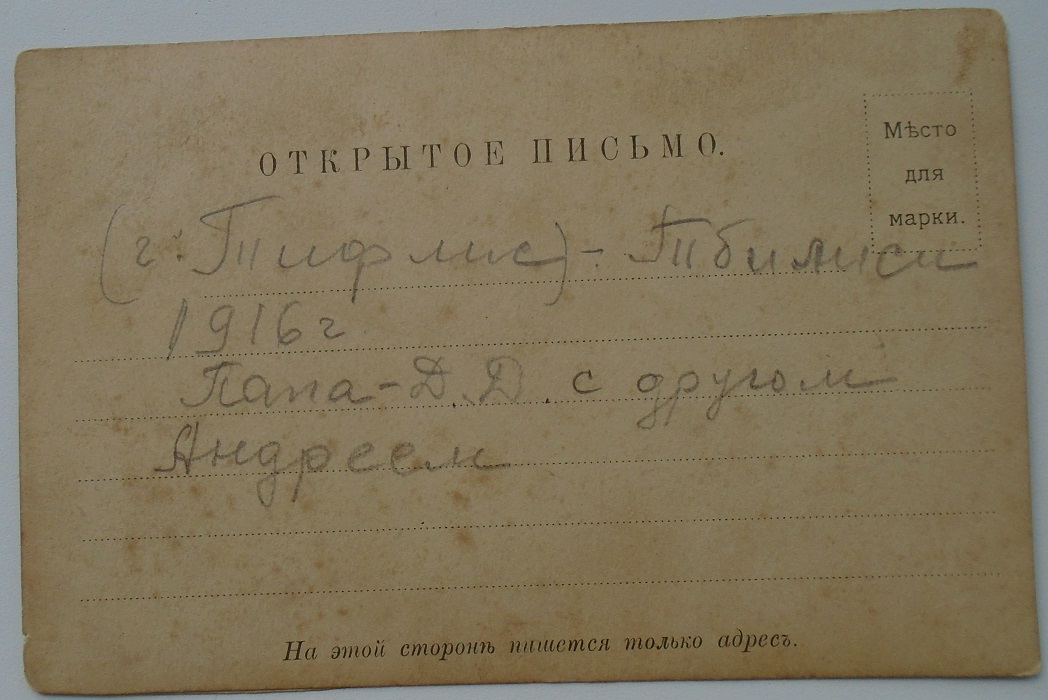 ОТКРЫТОЕ ПИСЬМО.
Мѣсто
для
марки.
(г. Тифлис) - Тбилиси
1916 г
Папа - Д. Д. с другом
Андреем
На этой сторонѣ пишется только адресъ.